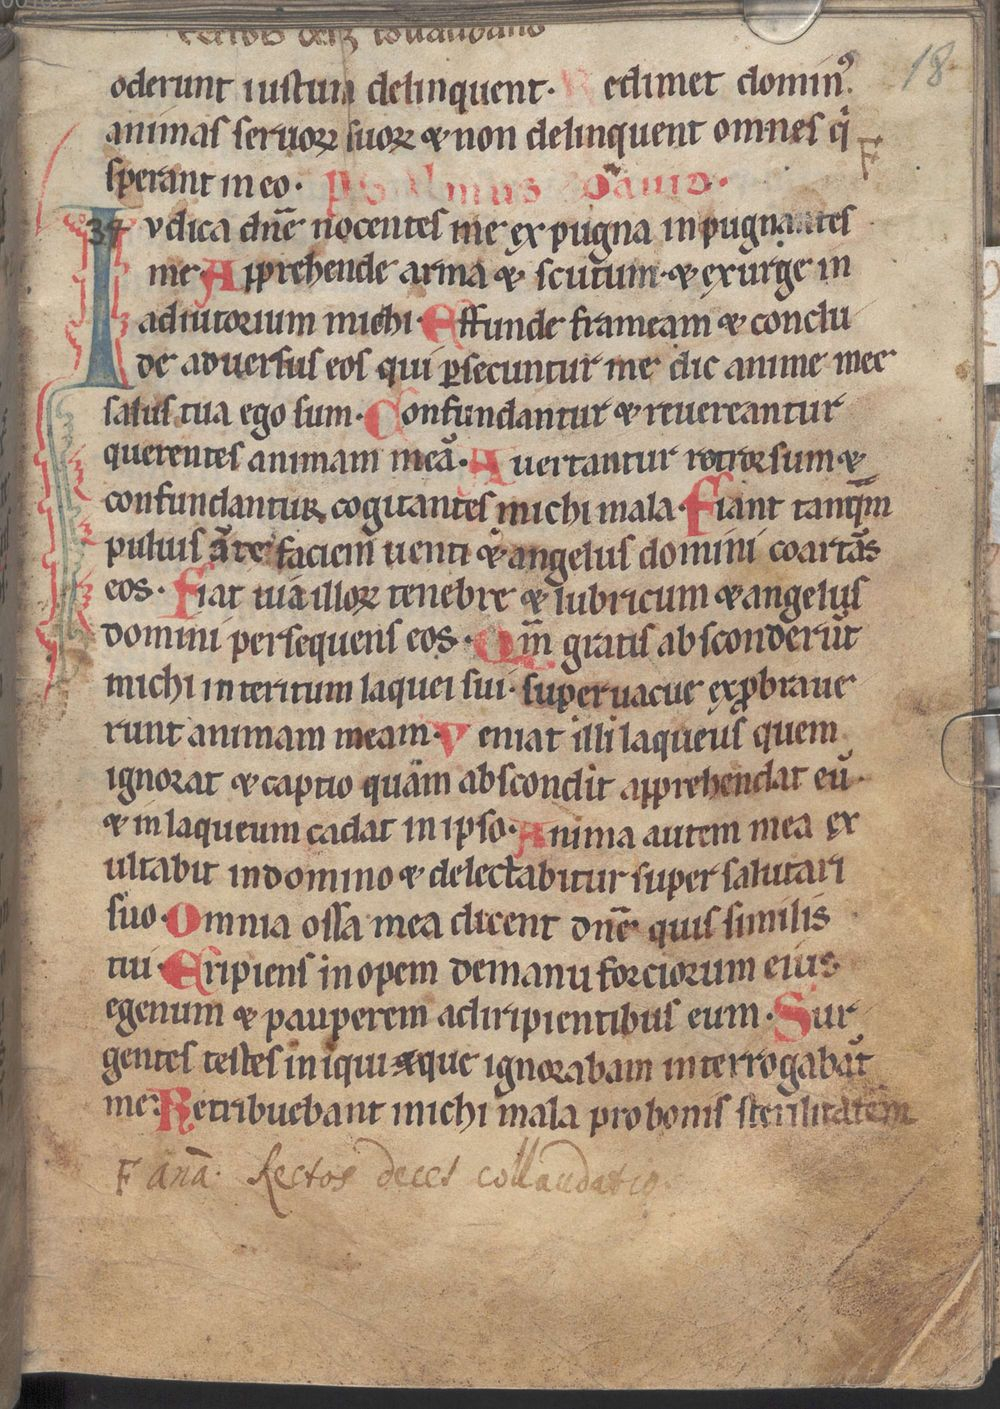 18
oderunt iustum delinquent. Redimet dominꝰ
animas seruoꝝ suoꝝ ⁊ non delinquent omnes q̇
sperant in eo. Psalmus Dauid.
F
34
Iudica dn̄e nocentes me expugna inpugnantes
me. Apprehende arma ⁊ scutum. ⁊ exurge in
adiutorium michi. Effunde frameam ⁊ conclu
de aduersus eos qui ꝑsecuntur me dic anime mee
salus tua ego sum. Confundantur ⁊ reuereantur
querentes animam meā. Auertantur retrorsum. ⁊
confundantur cogitantes michi mala. Fiant tanqm̄
puluis ante faciem uenti ⁊ angelus domini coartās
eos. Fiat uia illoꝝ tenebre ⁊ lubricum ⁊ angelus
domini persequens eos. Qm̄ gratis absconderūt
michi interitum laquei sui. superuacue exꝓbraue
runt animam meam. Veniat illi laqueus quem
ignorat ⁊ captio quam abscondit apprehendat eū.
⁊ in laqueum cadat in ipso. Anima autem mea ex
ultabit in domino ⁊ delectabitur super salutari
suo. Omnia ossa mea dicent dn̄e quis similis
tui. Eripiens inopem de manu forciorum eius
egenum ⁊ pauperem a diripientibus eum. Sur
gentes testes iniqui que ignorabam interrogabāt
me. Retribuebant michi mala pro bonis sterilitatem
F anā. Rectos decet collaudatio